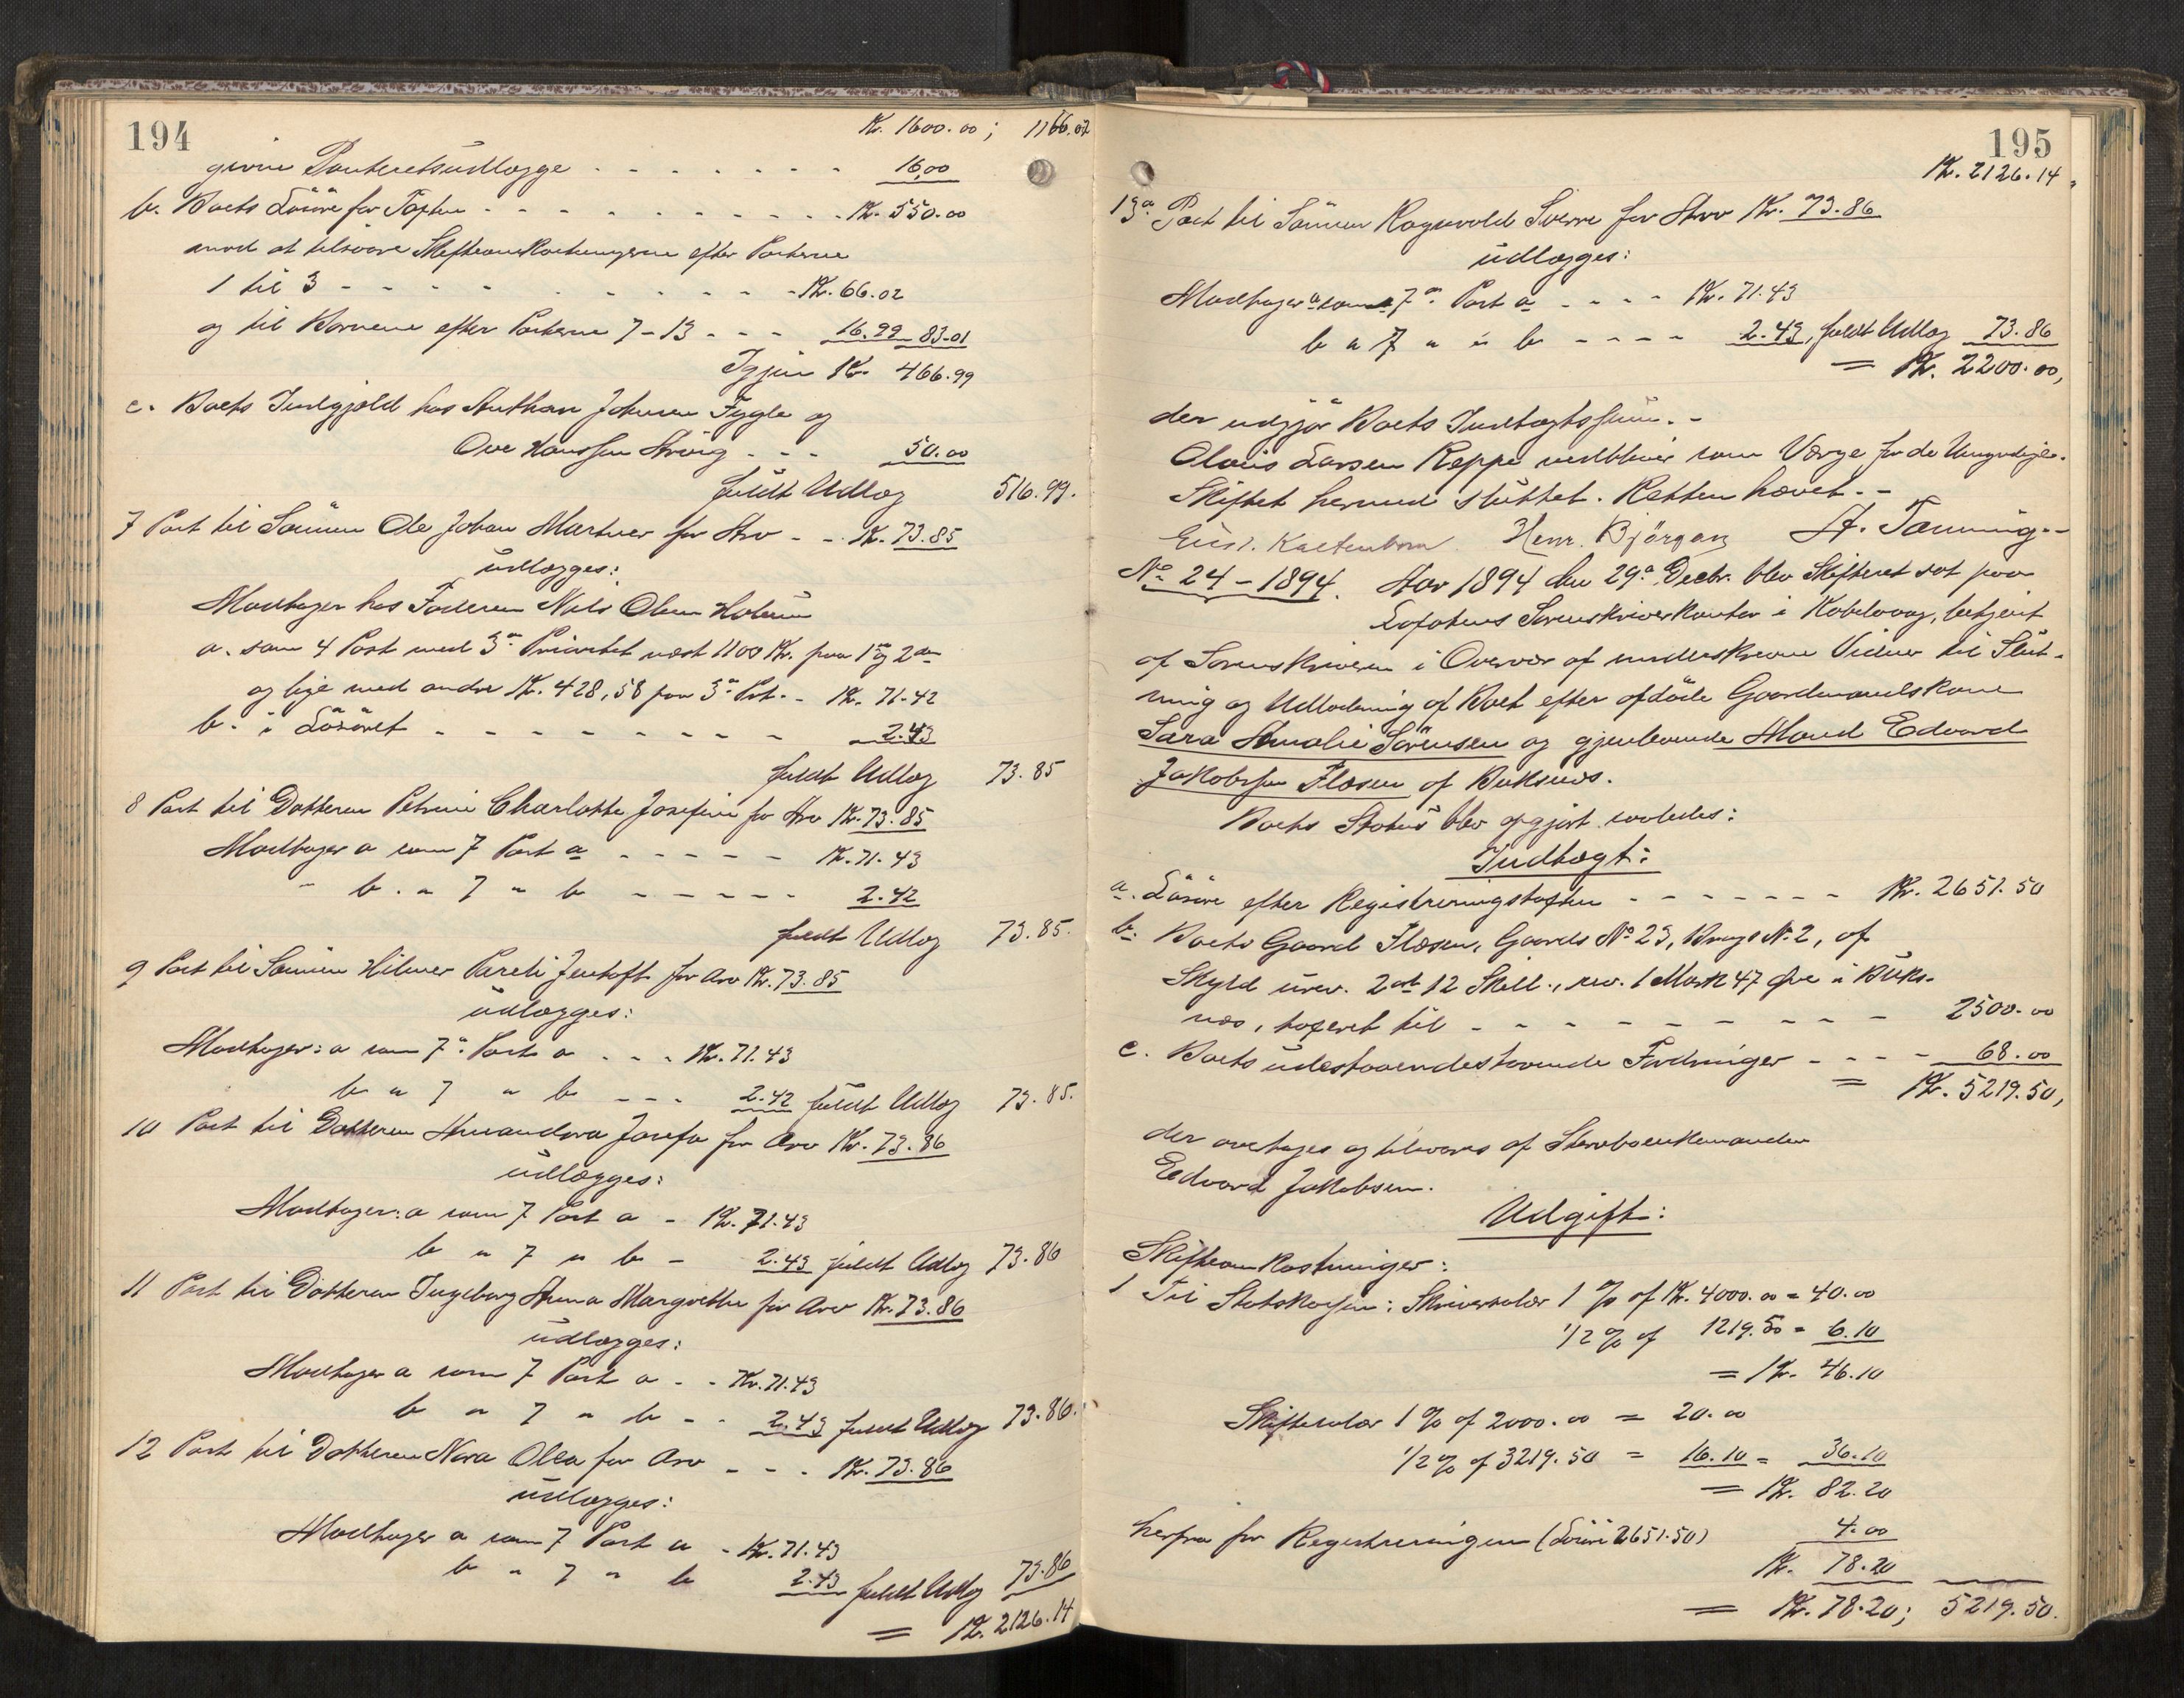 194
Kr. 1600.00; 1166.02
givne Panteretsudlægge - - - - - - - 16.00
b. Boets Løsøre for Taxten - - - - - - - - - Kr. 550.00
mod at tilsvare Skifteomkostningerne efter Posterne
1 til 3 - - - - - - - - - Kr. 66.02
og til Børnene efter Posterne 7-13 - - - 16.99 83.01
Igjen Kr. 466.99
c. Boets Indgjæld hos Anthon Johnsen Fygle og
Ove Hanssen - - - 50.00
fuldt Udlæg 516.99.
7 Post til Sønnen Ole Johan Martner for Arv - - Kr. 73.85
udlægges:
Modtager hos Faderen Nils Olsen
a. som 4 Post med 3die Prioritet næst 1100 Kr. paa 1ste og 2den
og lige med andre Kr. 428,58 paa 3die Prt. - Kr. 71.42
b. i Løsøret - - - - - - - - - 2.43
fuldt Udlæg 73.85
8 Post til Datteren Petrine Charlotte Josefine for Arv Kr. 73.85
Modtager a som 7 Post a - - - - - Kr. 71.43
" b. " 7 " b - - - - - 2.42
fuldt Udlæg 73.85.
9 Post til Sønnen Hilmer Pareli Jentoft for Arv Kr. 73.85
udlægges:
Modtager: a som 7. Post a - - - Kr. 71.43
b " 7 " b - - - 2.42 fuldt Udlæg 73.85.
10 Post til Datteren Josefa for Arv Kr. 73.86
udlægges:
Modtager: a som 7 Post a - Kr. 71.43
b " 7 " b - 2.43 fuldt Udlæg 73.86
11 Post til Datteren Ingeborg Anna Margrethe for Arv Kr. 73.86
udlægges:
Modtager a som 7 Post a - - Kr. 71.43
b " 7 " b - - 2.43 fuldt Udlæg 73.86.
12 Post til Datteren Nora Olea for Arv - - - Kr. 73.86
udlægges:
Modtager a som 7 Post a - Kr. 71.43
b " 7 " b 2.43 fuldt Udlæg 73.86
= Kr. 2126.14
195
Kr. 2126.14,
13de Post til Sønnen Ragnvald Sverre for Arv Kr. 73.86
udlægges:
Modtager a som 7de Post a - - - - Kr. 71.43
b " 7 " " b - - - - 2.43, fuldt Udlæg 73.86
= Kr. 2200.00,
der udgjør Boets Indtægtssum. -
Olaus Larsen Reppe vedbliver som Værge for de Umyndige.
Skiftet hermed sluttet. Retten hævet. -
Kaltenborn. Henr. Bjørgan A. Tønning. -
No 24 - 1894. Aar 1894 den 29de Decbr. blev Skifteret sat paa
Lofotens Sorenskriverkontor i Kabelvaag, betjent
af Sorenskriveren i Overvær af underskrevne Vidner til Slut-
ning og Udlodning af Boet efter afdøde Gaardmandskone
Sara Amalie Sørensen og gjenlevende Mand Edvard
Jakobsen Flæsen af Buksnæs.
Boets Status blev opgjort saaledes:
Indtægt:
a. Løsøre efter Registreringstaxten - - - - - - - Kr. 2651.50
b. Boets Gaard Flæsen, Gaards No 23, Brugs No 2, af
Skyld urev. 2 ort 12 Skill., rev. 1 Mark 47 Øre i Buks-
næs, taxeret til - - - - - - - - - - 2500.00
c. Boets udestaaendestaaende Fordringer - - - - 68.00
= Kr. 5219.50,
der overtages og tilsvares af Stervboenkemanden
Edvard Jakobsen.
Udgift:
Skifteomkostninger:
1 Til Statskassen: Skriversalær 1 % af Kr. 4000.00 = 40.00
1/2 % af 1219.50 = 6.10
= Kr. 46.10
Skiftesalær 1 % af 2000.00 = 20.00
1/2 % af 3219.50 = 16.10 = 36.10
= Kr. 82.20
herfra for Registreringen (Løsøre 2651.50) 4.00
Kr. 78.20
= Kr. 78.20; 5219.50.